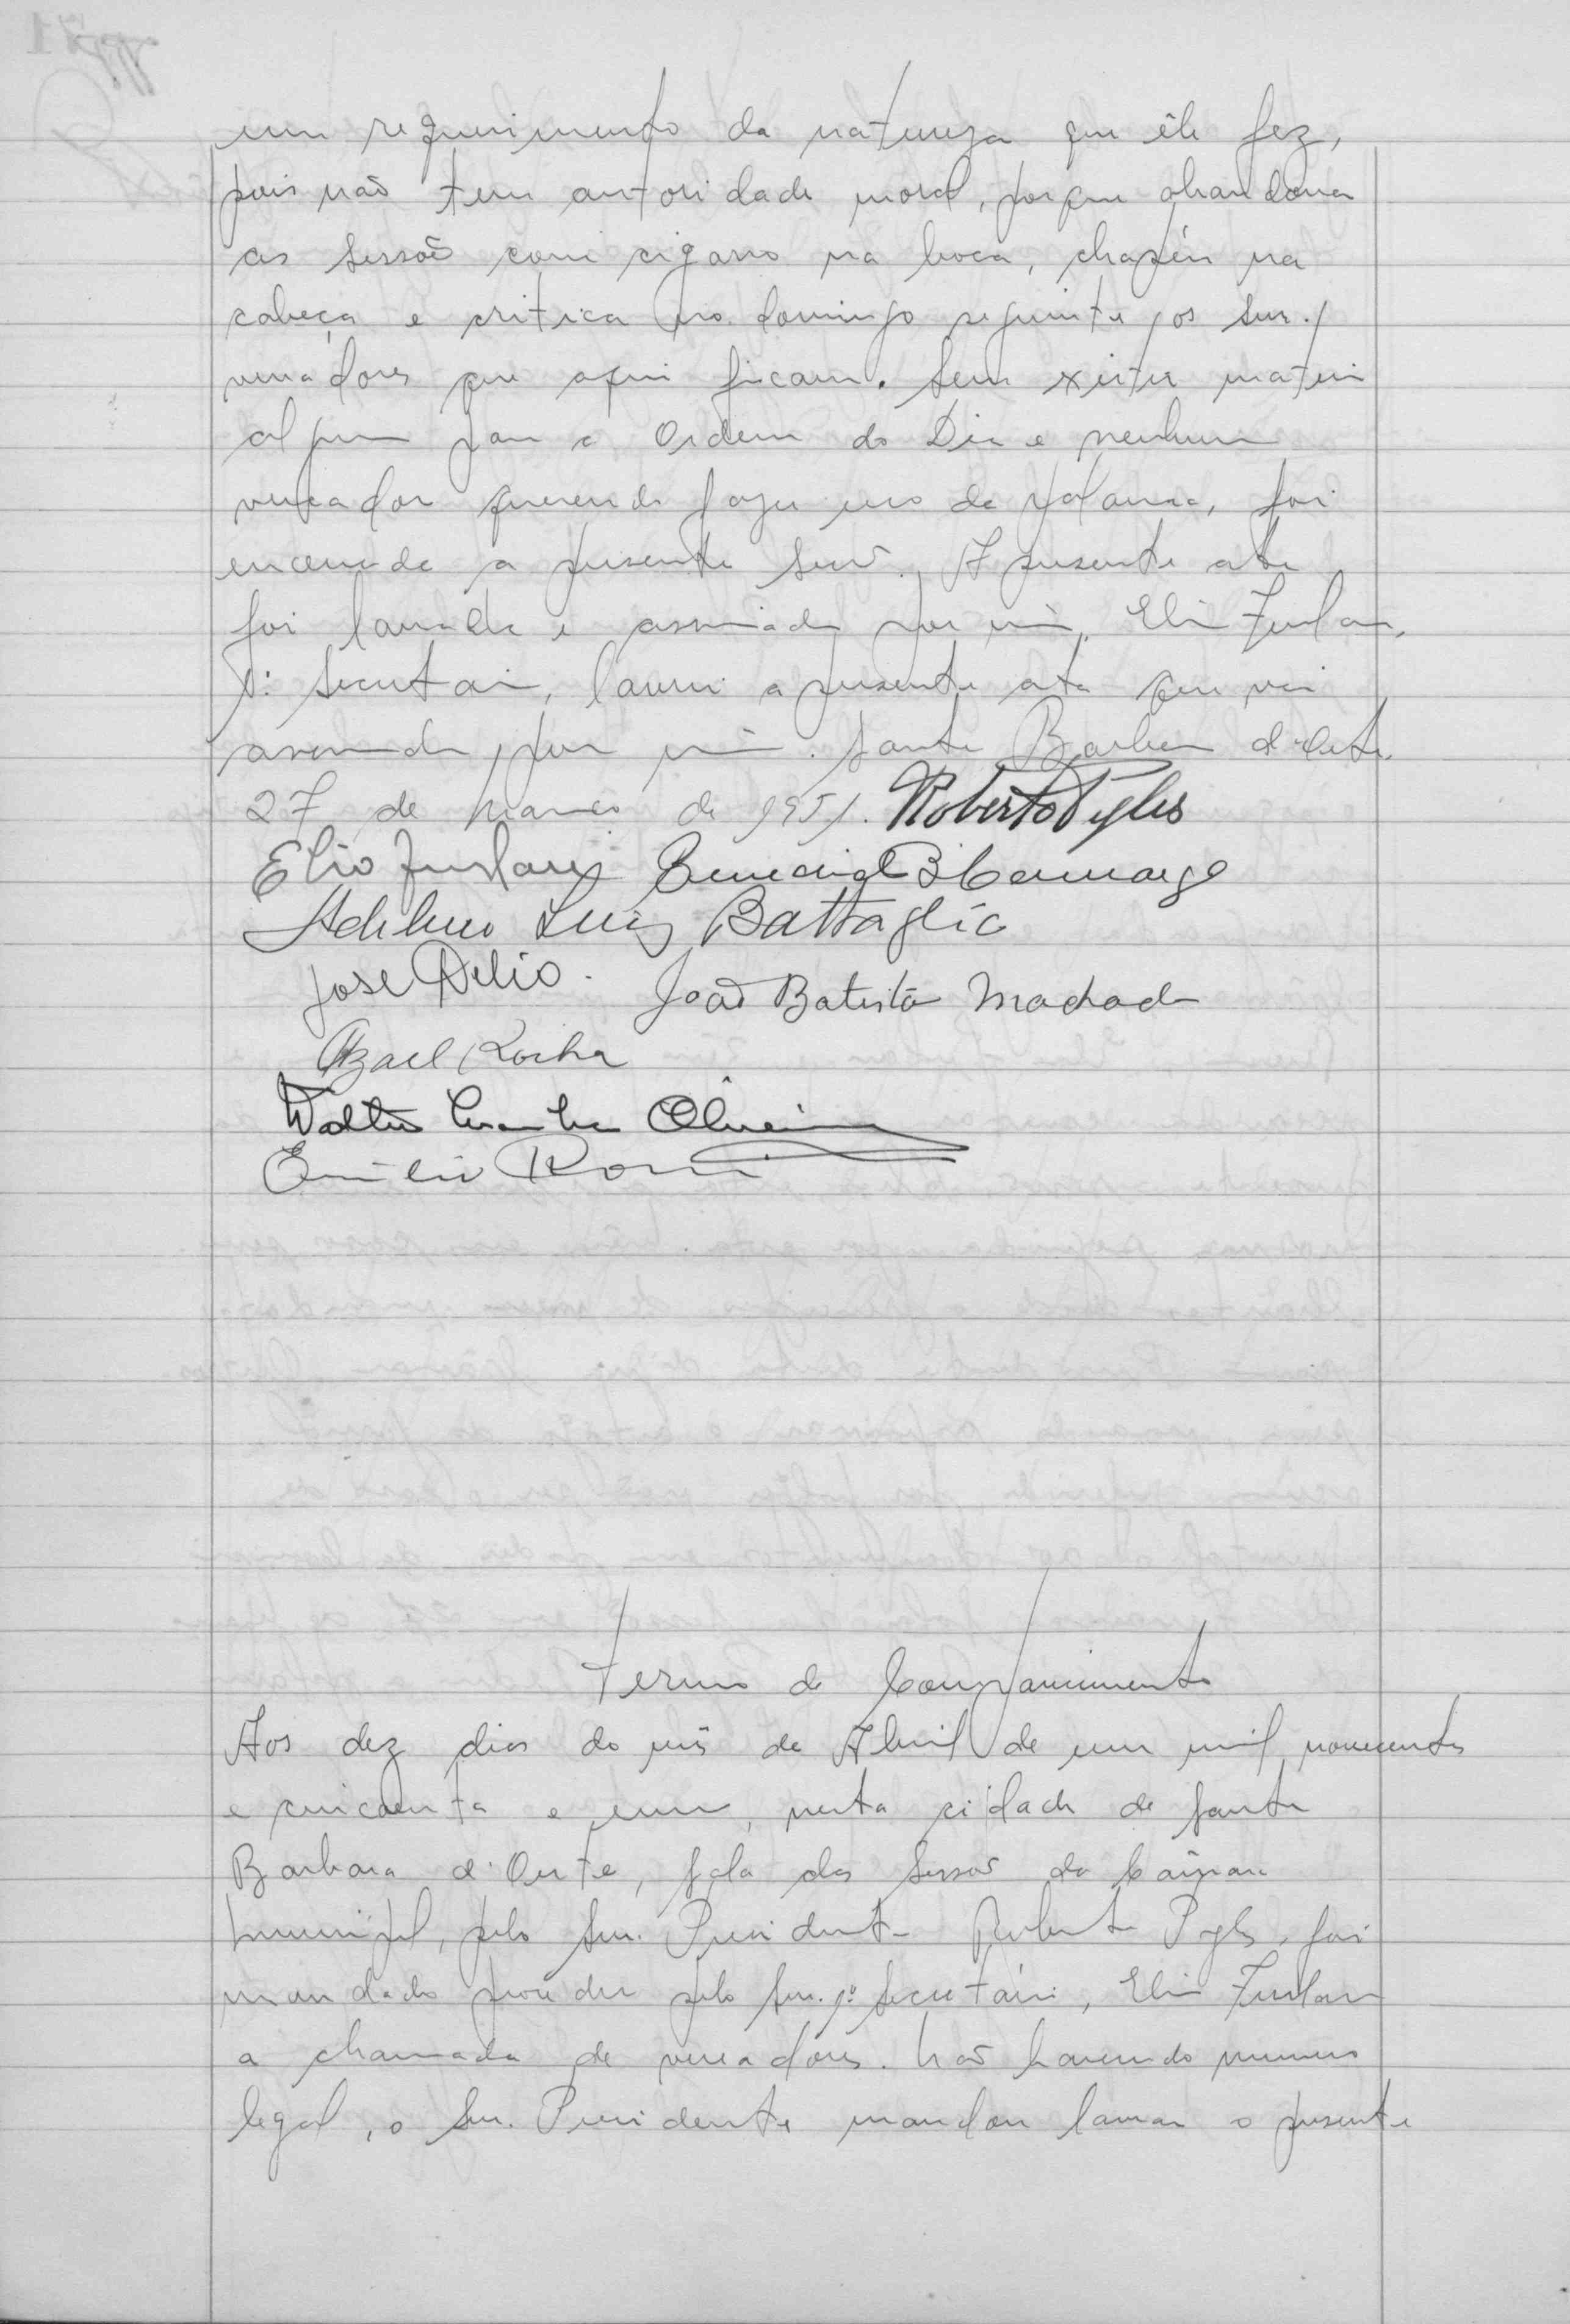 um requerimento da natureza que êle fez,
pois não tem autoridade moral, porque abandona
as sessõe com cigarro na boca, chapéu na
cabeça e critica no domingo seguinte os Snr.
vereadores que aqui ficam. Sem existir materi
algum para a Ordem do Dia e nenhum
vereador querendo fazer uso da palavra, foi
encerrada a presente sessão. A presente ata
foi lavrada e assinada por mim, Elio Furlan,
1º Secretario, lavrei a presente ata que vai
assinada por mim. Santa Barbara d'Oeste,
27 de Março de 1951. Roberto Pyles
Elio Furlan Benedicto B Camargo
Adelmo Luiz Battaglia
José Delio. João Batista Machado
Azael Rocha
Walter Oliveira
Emilio Romi
Termo de Comparecimento
Aos dez dias do mês de Abril de um mil novecentos
e cincoenta e um, nesta cidade de Santa
Barbara d'Oeste, sala das sessão da Câmara
Municipal, pelo Snr. Presidente Roberto Pyles, foi
mandado proceder pelo Snr. 1º Secretário, Elio Furlan
a chamada de vereadores. Não havendo numero
legal, o Snr. Presidente mandou lavrar o presente